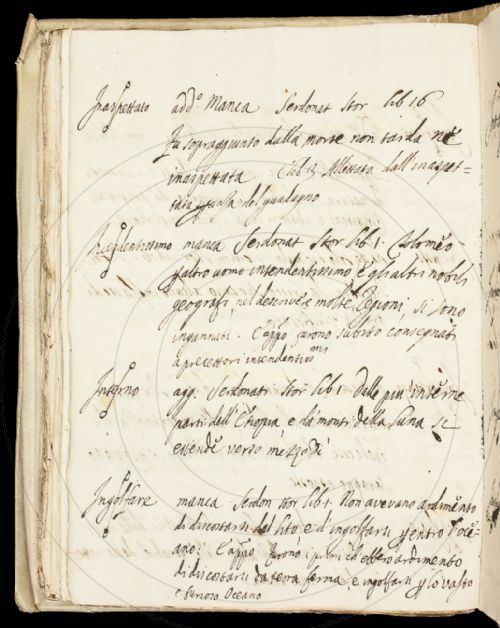 Inaspettato add.º Manca Serdonat Stor lib 16
Fu sopraggiunto dalla morte non tarda nè
inaspettata lib 13 Allettato dall'inaspet=
tata del guadagno
manca Serdonat Stor lib. 1. Tolomeo
p altro uomo intendentissimo e gli altri nobili
geografi nel descrivere molte Regioni si sono
ingannati. E appo furono subito consegnati
a precettori intendentissimi
Interno agg. Serdonati Stor lib 1 Dalle più interne
parti dell'Etiopia e da monti della Luna si
estende verso mezzodì
Ingolfare manca Serdon Stor lib. 1. Non avevano ardimento
di discostarsi dal lito e d'ingolfarsi p entro l'oce=
ano. E appo furono i primi ch ebbero ardimento
di discostarsi da terra ferma e ingolfarsi p lo vasto
e furioso Oceano